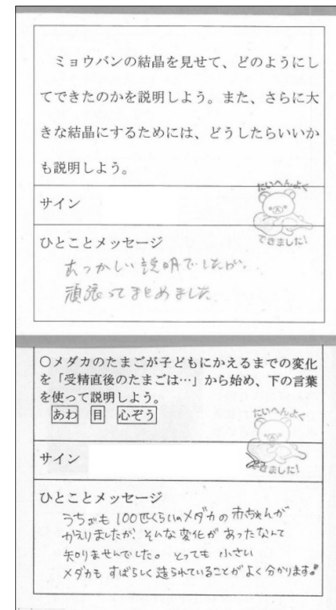 ミョウバンの結晶を見せて、どのようにし
てできたのかを説明しよう。また、さらに大
きな結晶にするためには、どうしたらいいか
も説明しよう。
たいへんよく
できました!
サイン
ひとことメッセージ
むつかしい説明でしたが、
頑張ってまとめました
○メダカのたまごが子どもにかえるまでの変化
を「受精直後のたまごは…」から始め、下の言葉
を使って説明しよう。
あわ 目 心ぞう
たいへんよく
できました!
サイン
ひとことメッセージ
うちでも100匹くらいのメダカの赤ちゃんが
かえりましたが、そんな変化があったなんて
知りませんでした。とっても小さい
メダカもすばらしく造られていることがよく分かります。